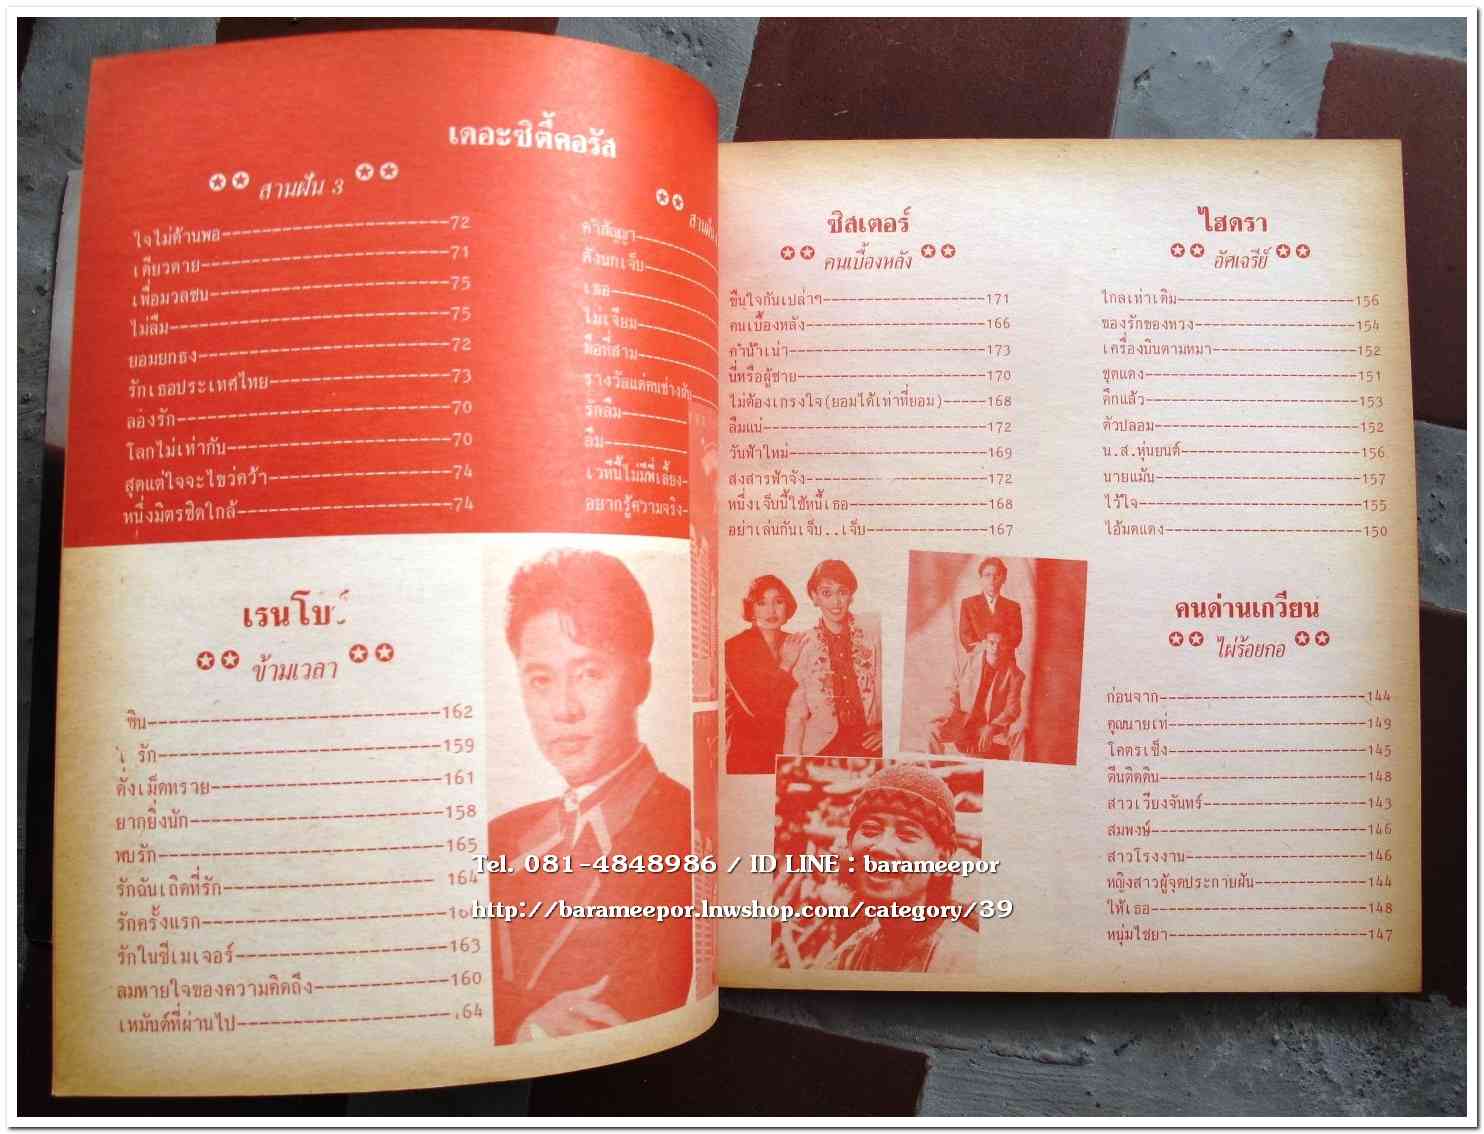 เดอะซิตี้คอรัส
สานฝัน 3
ใจไม่ด้านพอ 72
เดียวดาย 71
เพื่อมวลชน 75
ไม่ลืม 75
ยอมยกธง 72
รักเธอประเทศไทย 73
ล่องรัก 70
โลกไม่เท่ากัน 70
สุดแต่ใจจะไขว่คว้า 74
หนึ่งมิตรชิดใกล้ 74
สานฝัน
คำสัญญา
ดั่งนกเจ็บ
เธอ
ไม่เจียม
มือที่สาม
รางวัลแด่คนช่างฝัน
รักลืม
ลืม
เวทีนี้ไม่มีพี่เลี้ยง
อยากรู้ความจริง
เรนโบว์
ข้ามเวลา
ชิน 162
รัก 159
ดั่งเม็ดทราย 161
ยากยิ่งนัก 158
พบรัก 165
รักฉันเถิดที่รัก 164
รักครั้งแรก
รักในซีเมเจอร์ 163
ลมหายใจของความคิดถึง 160
เหมันต์ที่ผ่านไป 64
ซิสเตอร์
คนเบื้องหลัง
ขืนใจกันเปล่าๆ 171
คนเบื้องหลัง 166
คาน้ำเน่า 173
นี่หรือผู้ชาย 170
ไม่ต้องเกรงใจ(ยอมได้เท่าที่ยอม) 168
ลืมแน่ 172
วันฟ้าใหม่ 169
สงสารฟ้าจัง 172
หนึ่งเจ็บนี้ใช้หนี้เธอ 168
อย่าเล่นกันเจ็บ..เจ็บ 167
ไฮดรา
อัศเจรีย์
ไกลเท่าเดิม 156
ของรักของหวง 154
เครื่องบินตามหมา 152
ชุดแดง 151
ดึกแล้ว 153
ตัวปลอม 152
น.ส.หุ่นยนต์ 156
นายแม้น 157
ไว้ใจ 155
ไอ้มดแดง 150
คนด่านเกวียน
ไผ่ร้อยกอ
ก่อนจาก 144
คุณนายเท่ 149
โคตรเซ็ง 145
ตีนติดดิน 148
สาวเวียงจันทร์ 143
สมพงษ์ 146
สาวโรงงาน 146
หญิงสาวผู้จุดประกายฝัน 144
ให้เธอ 148
หนุ่มไชยา 147
Tel. 081-4848986 / ID LINE : barameepor
http://barameepor.lnwshop.com/category/39